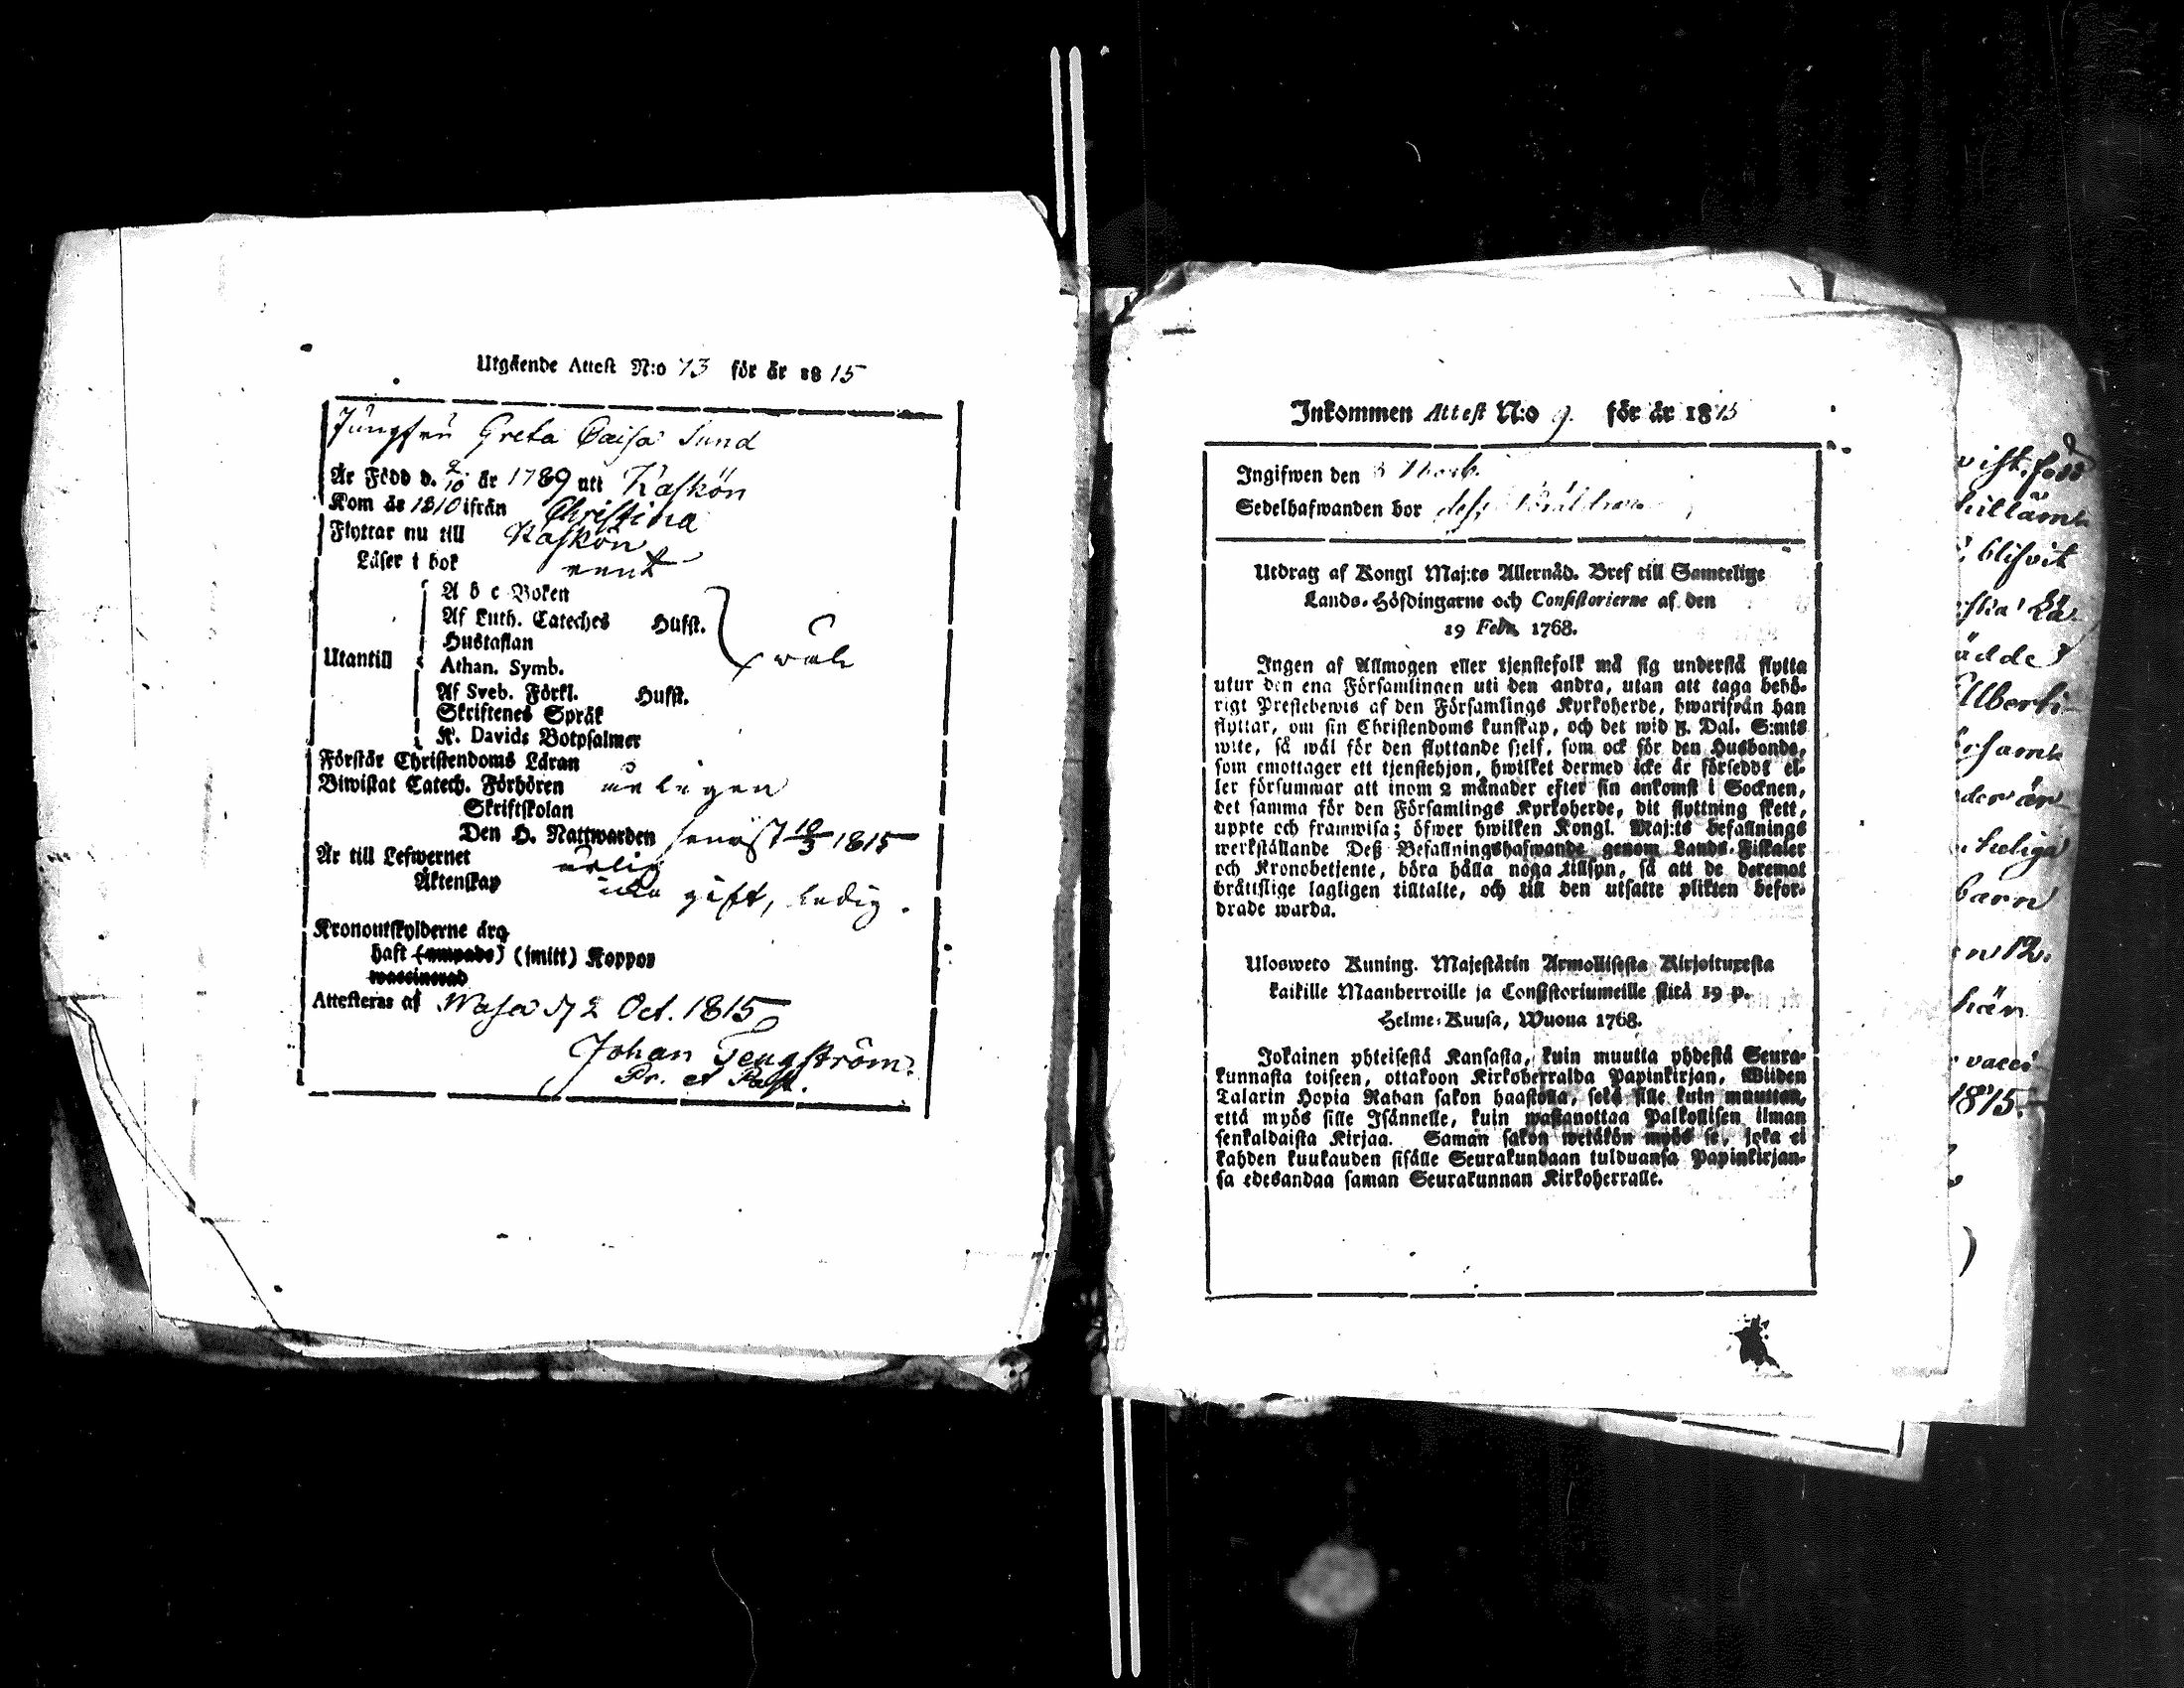 Utgående Attest N:o 73 för år 1815
Jungfru Greta Caisa Sund
Är Född d. 2/10 år 1789 uti Kaskön
Kom år 1810 ifrån Christina
Flyttar nu till Kaskön
Läser i bok rent
A b c Boken
Af Luth. Cateches Husst.
Hustaflan
Utantill Athan. Symb. wäl
Af Sveb. Förkl. Husst.
Skriftenes Språk
K. Davids Botpsalmer
Förstår Christendoms Läran
Biwistat Catech. Förhören årligen
Skriftskolan
Den H. Nattwarden senast 10/3 1815
Är till Lefwernet ärlig
Äktenskap icke gift, ledig.
Kronoutskylderne äro
haft (ympade) (smitt) Koppor
waccinerad
Attesteras af Wasa d. 2 Oct. 1815
Johan Tengström.
Pr. et Past.
Inkommen Attest N:o 9. för år 1815
Ingifwen den
Sedelhafwanden bor dess
Utdrag af Kongl Maj:ts Allernåd. Bref till Samtelige
Lands-Höfdingarne och Consistorierne af den
19 Febr. 1768.
Ingen af Allmogen eller tjenstefolk må sig understå flytta
utur den ena Församlingen uti den andra, utan att taga behö-
rigt Prestebewis af den Församlings Kyrkoherde, hwarifrån han
flyttar, om sin Christendoms kunskap, och det wid 3. Dal. S:mts
wite, så wäl för den flyttande sielf, som ock för den Husbonde,
som emottager ett tjenstehjon, hwilket dermed icke är förseddt el-
ler försummar att inom 2 månader efter sin ankomst i Socknen,
det samma för den Församlings Kyrkoherde, dit flyttning skett,
uppte och framwisa; öfwer hwilken Kongl. Maj:ts befallnings
werkställande Deß Befallningshafwande genom Lands-Fiskaler
och Kronobetjente, böra hålla noga tillsyn, så att de deremot
bråttslige lagligen tilltalte, och till den utsatte plikten befor-
drade warda.
Ulosweto Kuning. Majestätin Armollisesta Kirjoituxesta
kaikille Maanherroille ja Consistoriumeille siitä 19 p.
Helme-Kuusa, Wuona 1768.
Jokainen yhteisestä Kansasta, kuin muutta yhdestä Seura-
kunnasta toiseen, ottakoon Kirkoherralda Papinkirjan, Wiiden
Talarin Hopia Rahan sakon haastolla, sekä sille kuin muuttaa,
että myös sille Isännelle, kuin wastanottaa Palkollisen ilman
senkaldaista Kirjaa. Saman sakon wetäkön myös se, joka ei
kahden kuukauden sisälle Seurakundaan tulduansa Papinkirjan-
sa edesandaa saman Seurakunnan Kirkoherralle.
blifvit
barn
här
1815.